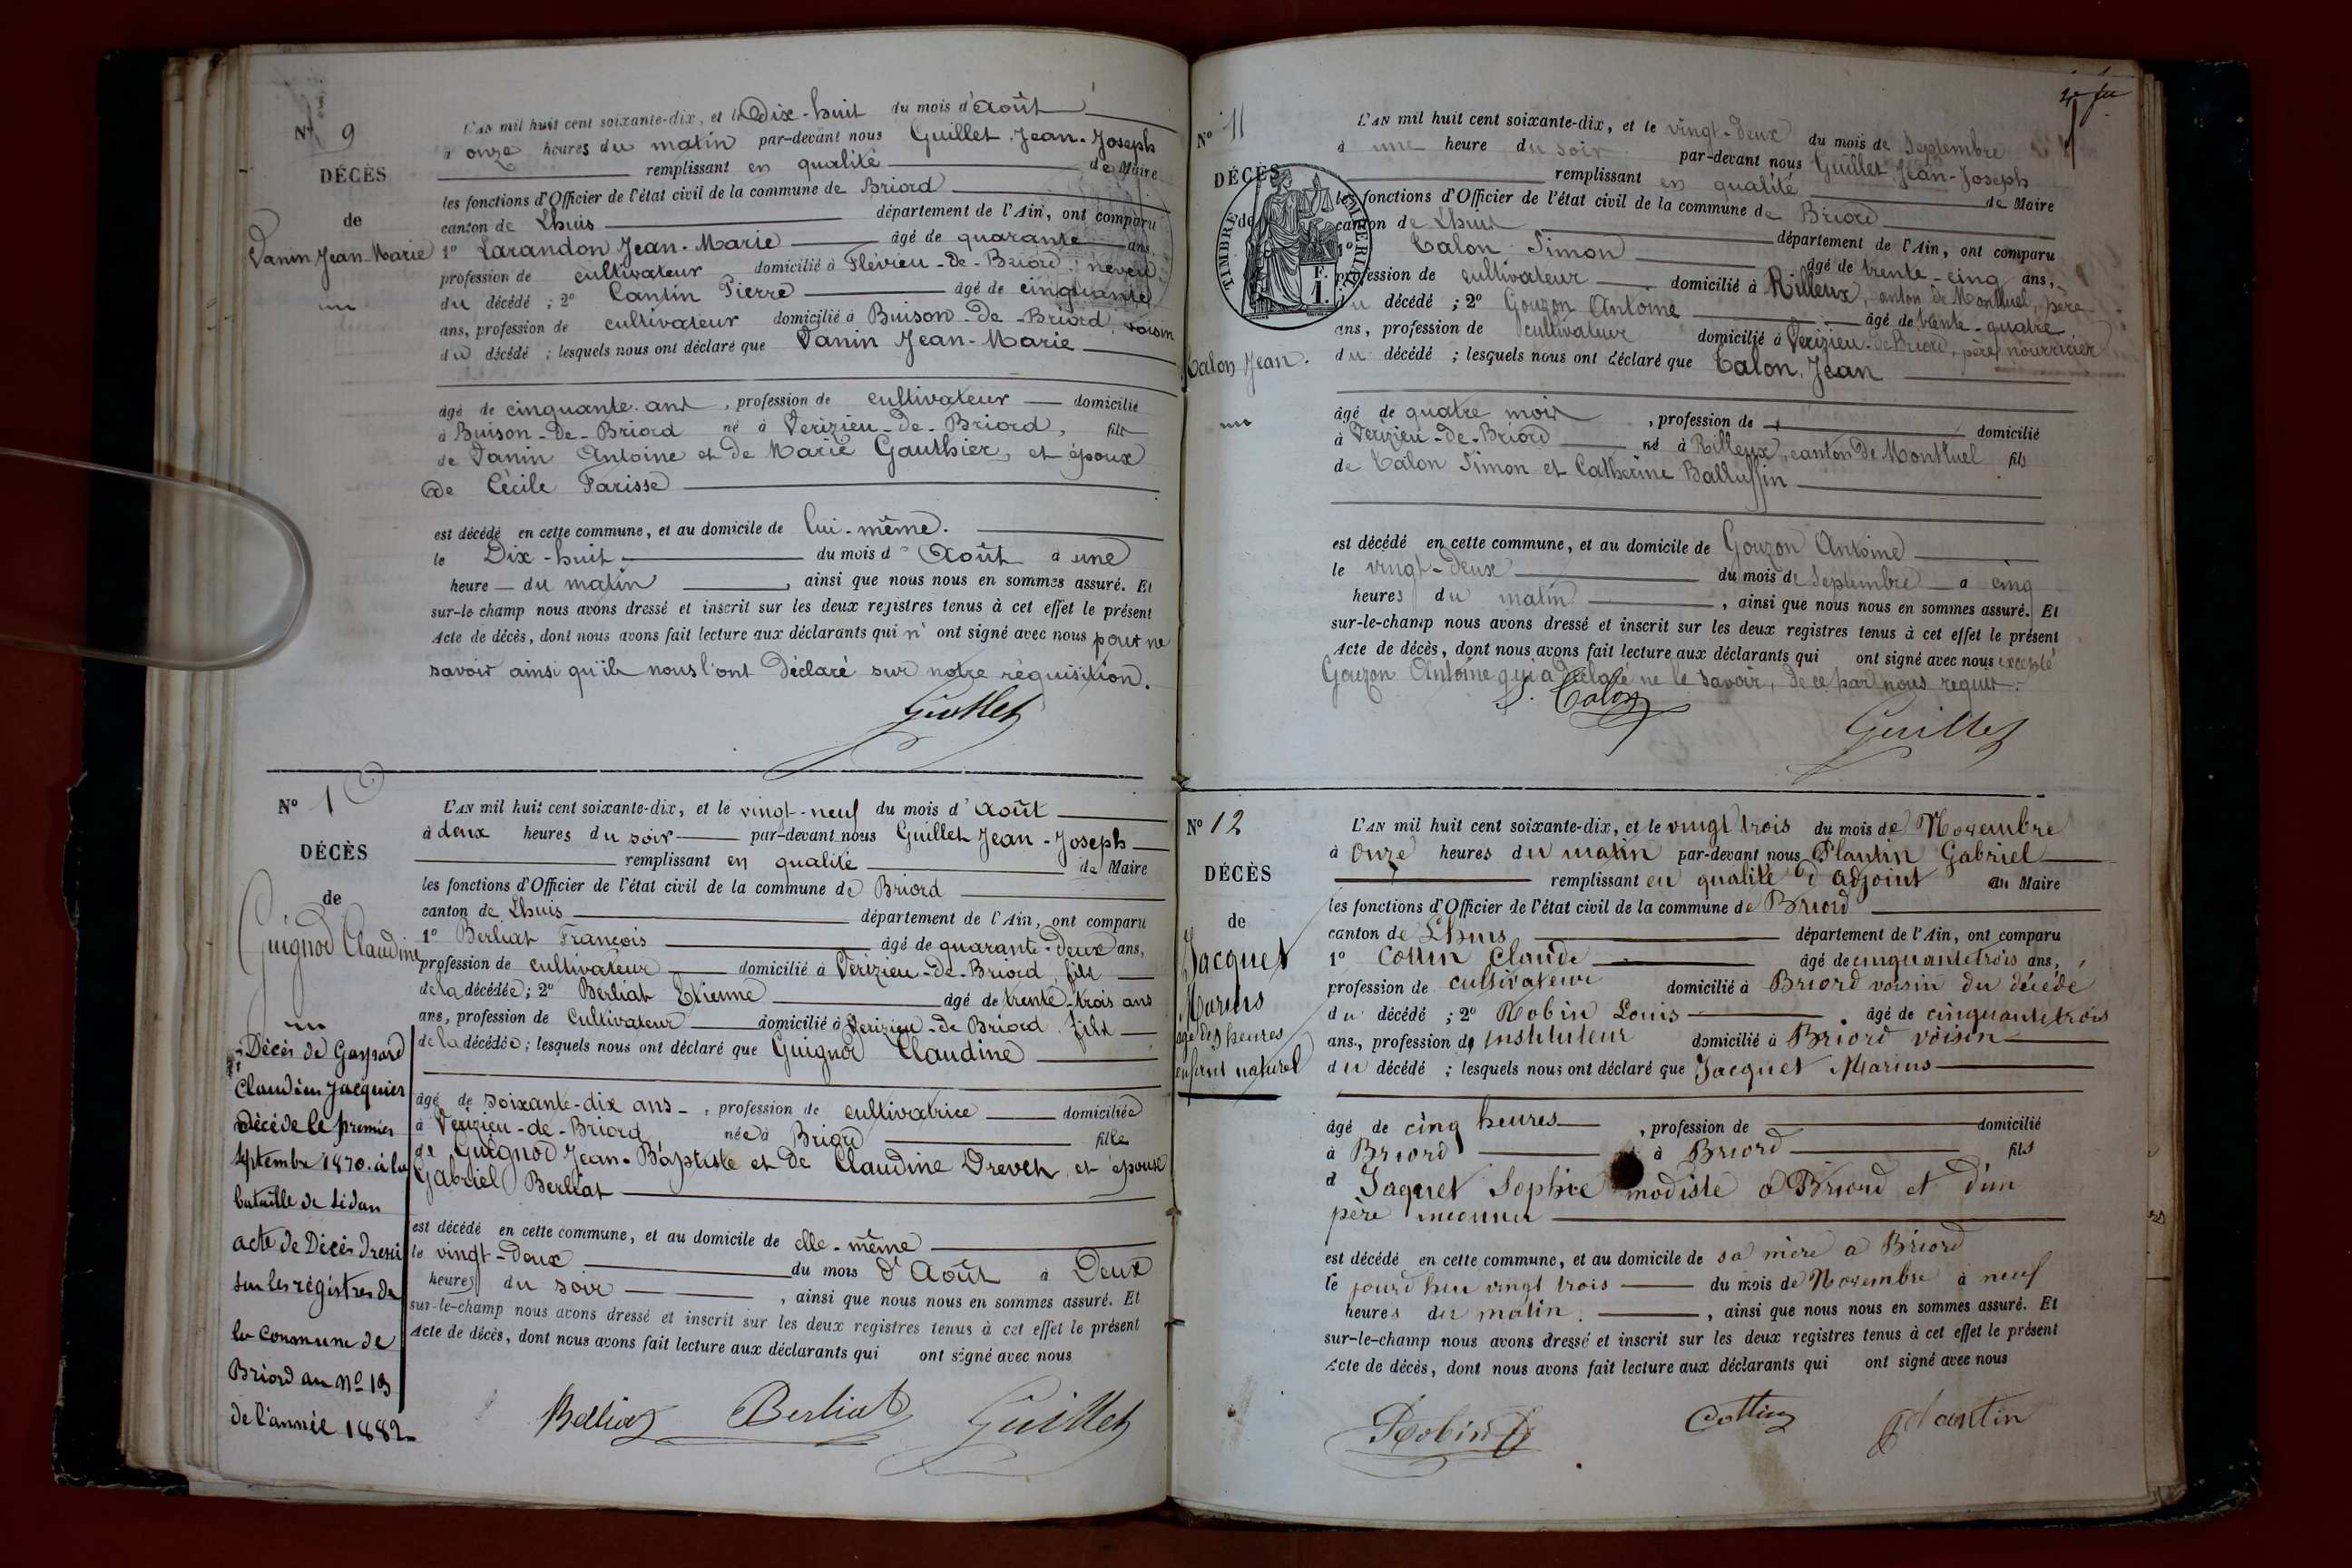 N° 9
DÉCÈS
de
Vanin Jean-Marie
L'AN mil huit cent soixante-dix, et le Dix-huit du mois d'Août
à onze heures du matin par-devant nous Guillet Jean-Joseph
remplissant en qualité de Maire
les fonctions d'Officier de l'état civil de la commune de Briord
canton de Lhuis département de l'Ain, ont comparu
1° Larandon Jean-Marie âgé de quarante ans
profession de cultivateur domicilié à Flévieu-de-Briord, neveu
du décédé ; 2° Cantin Pierre âgé de cinquante
ans, profession de cultivateur domicilié à Buison-De-Briord, voisin
du décédé ; lesquels nous ont déclaré que Vanin Jean-Marie
âgé de cinquante ans, profession de cultivateur domicilié
à Buison-De-Briord né à Verizieu-De-Briord, fils
de Vanin Antoine et de Marie Gauthier, et époux
de Cécile Farisse
est décédé en cette commune, et au domicile de lui-même.
le Dix-huit du mois d'Août à une
heure du matin, ainsi que nous nous en sommes assuré. Et
sur-le-champ nous avons dressé et inscrit sur les deux registres tenus à cet effet le présent
Acte de décès, dont nous avons fait lecture aux déclarants qui n'ont signé avec nous pour ne
savoir ainsi qu'ils nous l'ont Déclaré sur notre réquisition.
Guillet
N° 10
DÉCÈS
de
Guignod Claudine
L'AN mil huit cent soixante-dix, et le vingt-neuf du mois d'Août
à deux heures du soir par-devant nous Guillet Jean-Joseph
remplissant en qualité de Maire
les fonctions d'Officier de l'état civil de la commune de Briord
canton de Lhuis département de l'Ain, ont comparu
1° Berliat François âgé de quarante-deux ans,
profession de cultivateur domicilié à Verizieu-De-Briord, fils
de la décédée ; 2° Berliat Etienne âgé de trente-trois ans
ans, profession de Cultivateur domicilié à Verizieu-de-Briord fils
de la décédée ; lesquels nous ont déclaré que Guignod Claudine
âgé de soixante-dix ans, profession de cultivatrice domiciliée
à Verizieu-de-Briord née à Briord fille
de Guignod Jean-Baptiste et de Claudine Dreveh et épouse
Gabriel Berliat
est décédé en cette commune, et au domicile de elle-même
le vingt-Deux du mois d'Août à Deux
heures du soir, ainsi que nous nous en sommes assuré. Et
sur-le-champ nous avons dressé et inscrit sur les deux registres tenus à cet effet le présent
Acte de décès, dont nous avons fait lecture aux déclarants qui ont signé avec nous
Berliat Berliat Guillet
Décès de Gaspard
Claudien Jacquier
Décédé le premier
septembre 1870 à la
bataille de Sédan
acte de Décès dressé
sur les régistres de
la Commune de
Briord au N° 13
de l'année 1882
N° 11
DÉCÈS
de
TIMBRE IMPERIAL
F.
1.
Calon Jean.
L'AN mil huit cent soixante-dix, et le vingt-Deux du mois de Septembre
à une heure du soir par-devant nous Guillet Jean-Joseph
remplissant en qualité de Maire
les fonctions d'Officier de l'état civil de la commune de Briord
canton de Lhuis département de l'Ain, ont comparu
1° Calon Simon âgé de trente-cinq ans,
profession de cultivateur domicilié à Rilleux, canton de Montluel, père
du décédé ; 2° Gouzon Antoine âgé de trente-quatre
ans, profession de cultivateur domicilié à Verizieu-de-Briord, père nourricier
du décédé ; lesquels nous ont déclaré que Calon Jean
âgé de quatre mois, profession de domicilié
à Verizieu-de-Briord né à Rilleux, canton De Montluel fils
de Calon Simon et Catherine Balluffin
est décédé en cette commune, et au domicile de Gouzon Antoine
le vingt-deux du mois de Septembre à cinq
heures du matin, ainsi que nous nous en sommes assuré. Et
sur-le-champ nous avons dressé et inscrit sur les deux registres tenus à cet effet le présent
Acte de décès, dont nous avons fait lecture aux déclarants qui ont signé avec nous excepté
Gouzon Antoine qui a Déclaré ne le savoir, de ce par nous requis.
S. Calon
Guillet
N° 12
DÉCÈS
de
Jacquet
Marius
agé de 5 heures
enfant naturel
L'AN mil huit cent soixante-dix, et le vingt trois du mois de Novembre
à Onze heures du matin par-devant nous Plantin Gabriel
remplissant en qualité d'adjoint au Maire
les fonctions d'Officier de l'état civil de la commune de Briord
canton de Lhuis département de l'Ain, ont comparu
1° Cottin Claude âgé de cinquante trois ans,
profession de cultivateur domicilié à Briord voisin du décédé
du décédé ; 2° Robin Louis âgé de cinquante trois
ans, profession de instituteur domicilié à Briord voisin
du décédé ; lesquels nous ont déclaré que Jacquet Marius
âgé de cinq heures, profession de domicilié
à Briord à Briord fils
d Jaquet Sophie modiste a Briord et d'un
père inconnu
est décédé en cette commune, et au domicile de sa mère a Briord
le jourd'hui vingt trois du mois de Novembre à neuf
heures du matin, ainsi que nous nous en sommes assuré. Et
sur-le-champ nous avons dressé et inscrit sur les deux registres tenus à cet effet le présent
Acte de décès, dont nous avons fait lecture aux déclarants qui ont signé avec nous
Robin Cottin Plantin